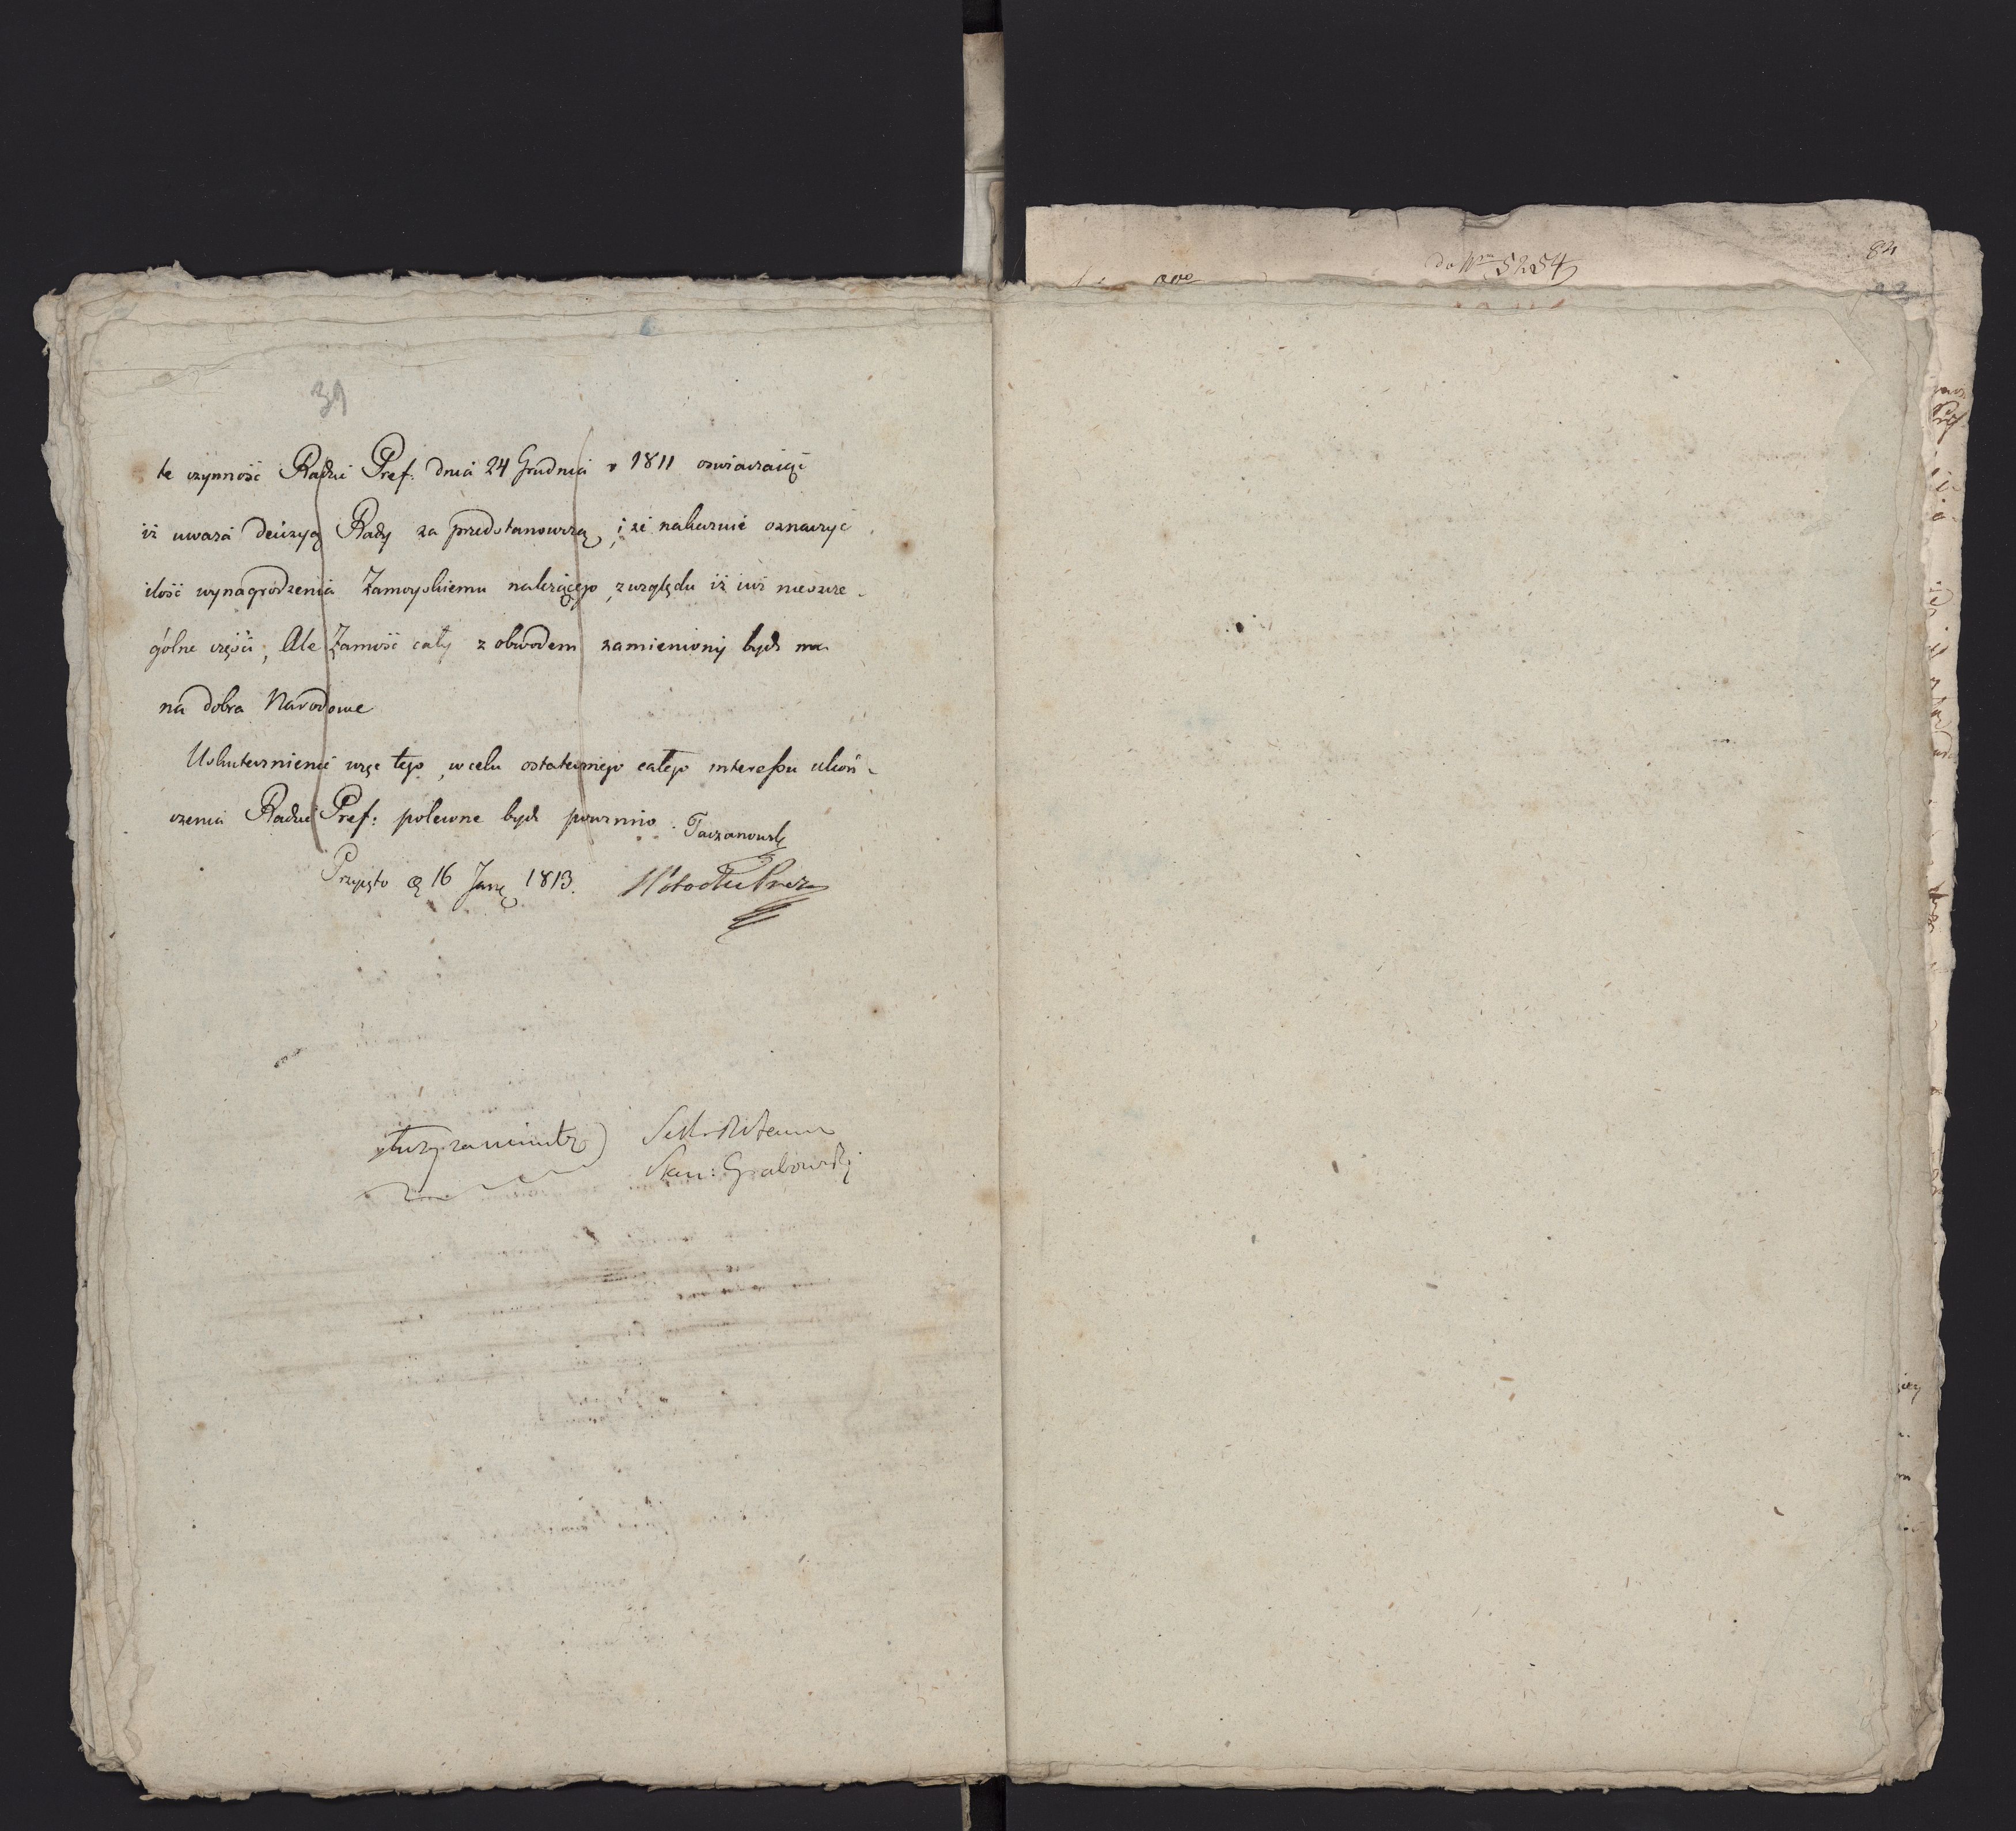 39
te czynność Radzie Pref. dnia 24 Grudnia r 1811 oswiadczaiąc
iż uwaza decizyą Rady za przedstanowczą, i że nakaznie oznaczyc
ilość wynagrodzenia Zamoyskiemu nalezącego, z względu iż iuż nieszcze-
gólne części, Ale Zamość cały z obwodem zamieniony bydź ma
na dobra Narodowe
Uskutecznienie więc tego, w celu ostatecznego całego interessu ukoń-
czenia Radzie Pref: polecone bydź powinno. Taczanowski
Przyięto 16 1813.
Stan: Grabowski
do Nru 5254
84